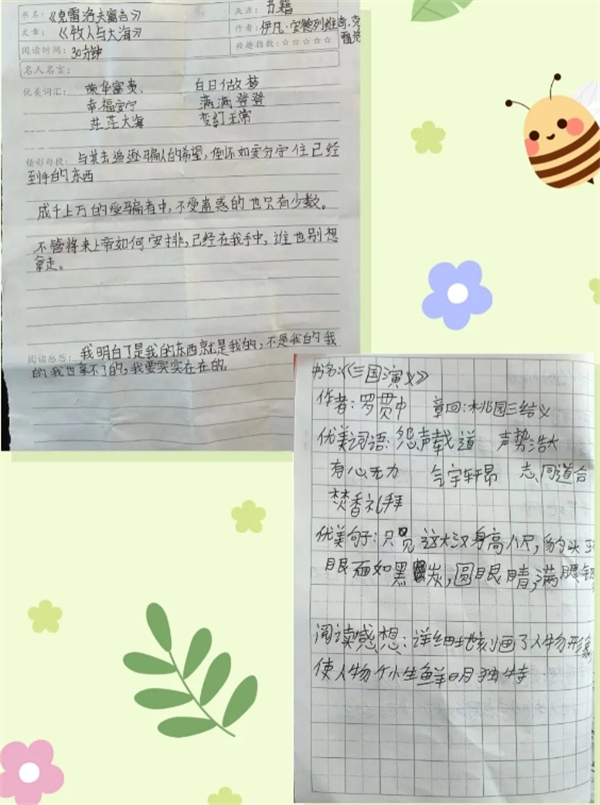 书名:《克雷洛夫寓言》
来源:书籍
文章:《牧人与大海》
作者:伊凡·安德列维奇·克
雷洛
阅读时间:30分钟
兴趣指数:☆☆☆☆☆
名人名言:
优美词汇: 荣华富贵、 白日做梦
幸福安宁 满满登登
茫茫大海 变幻无常
精彩句段: 与其去追逐骗人的希望,倒不如安分守住已经
到手的东西
成千上万的受骗者中,不受蛊惑的也只有少数。
不管将来上帝如何安排,已经在我手中,谁也别想
拿走。
阅读感想: 我明白了是我的东西就是我的,不是我的我
的我也拿不了的,我要实实在在的。
书名:《三国演义》
作者:罗贯中 章回:桃园三结义
优美词语:怨声载道 声势浩大
有心无力 气宇轩昂 志同道合
焚香礼拜
优美句子:只见这大汉身高八尺,豹头
眼面如黑炭,圆眼睛,满腮
阅读感想:详细地刻画了人物形象
使人物个小生鲜明独特